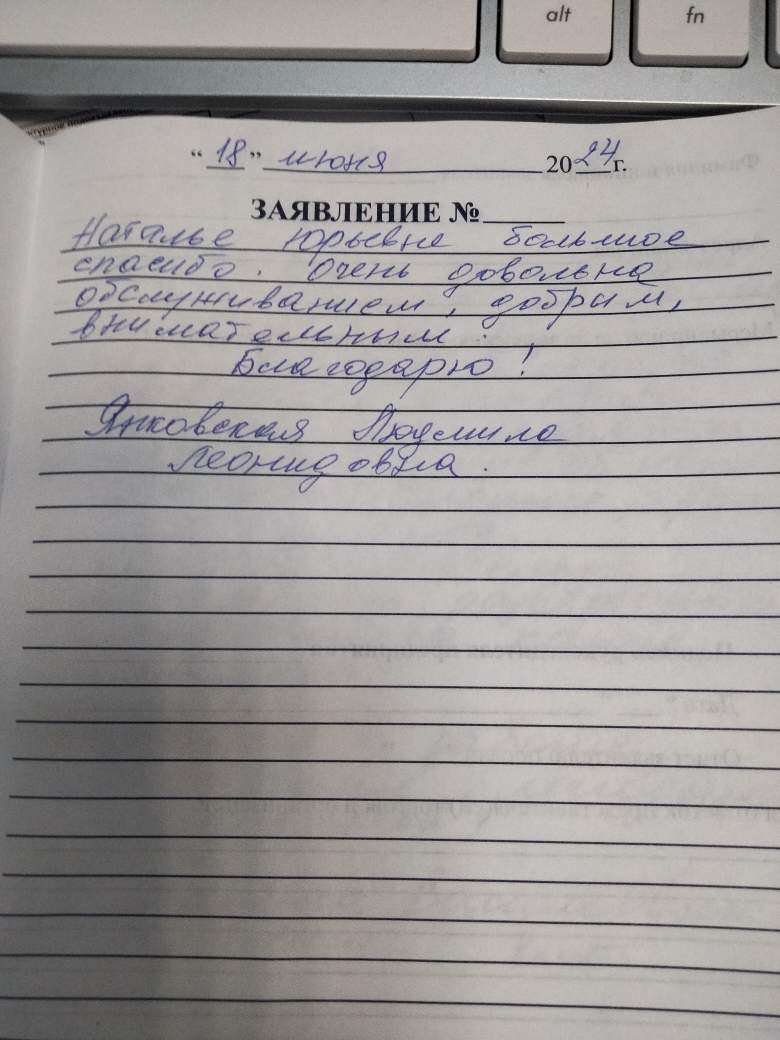 alt
fn
“18” июня 2024г.
ЗАЯВЛЕНИЕ №
Наталье Юрьевне большое
спасибо. Очень довольна
обслуживанием, добрым,
внимательным.
Благодарю!
Янковская Людмила
Леонидовна.